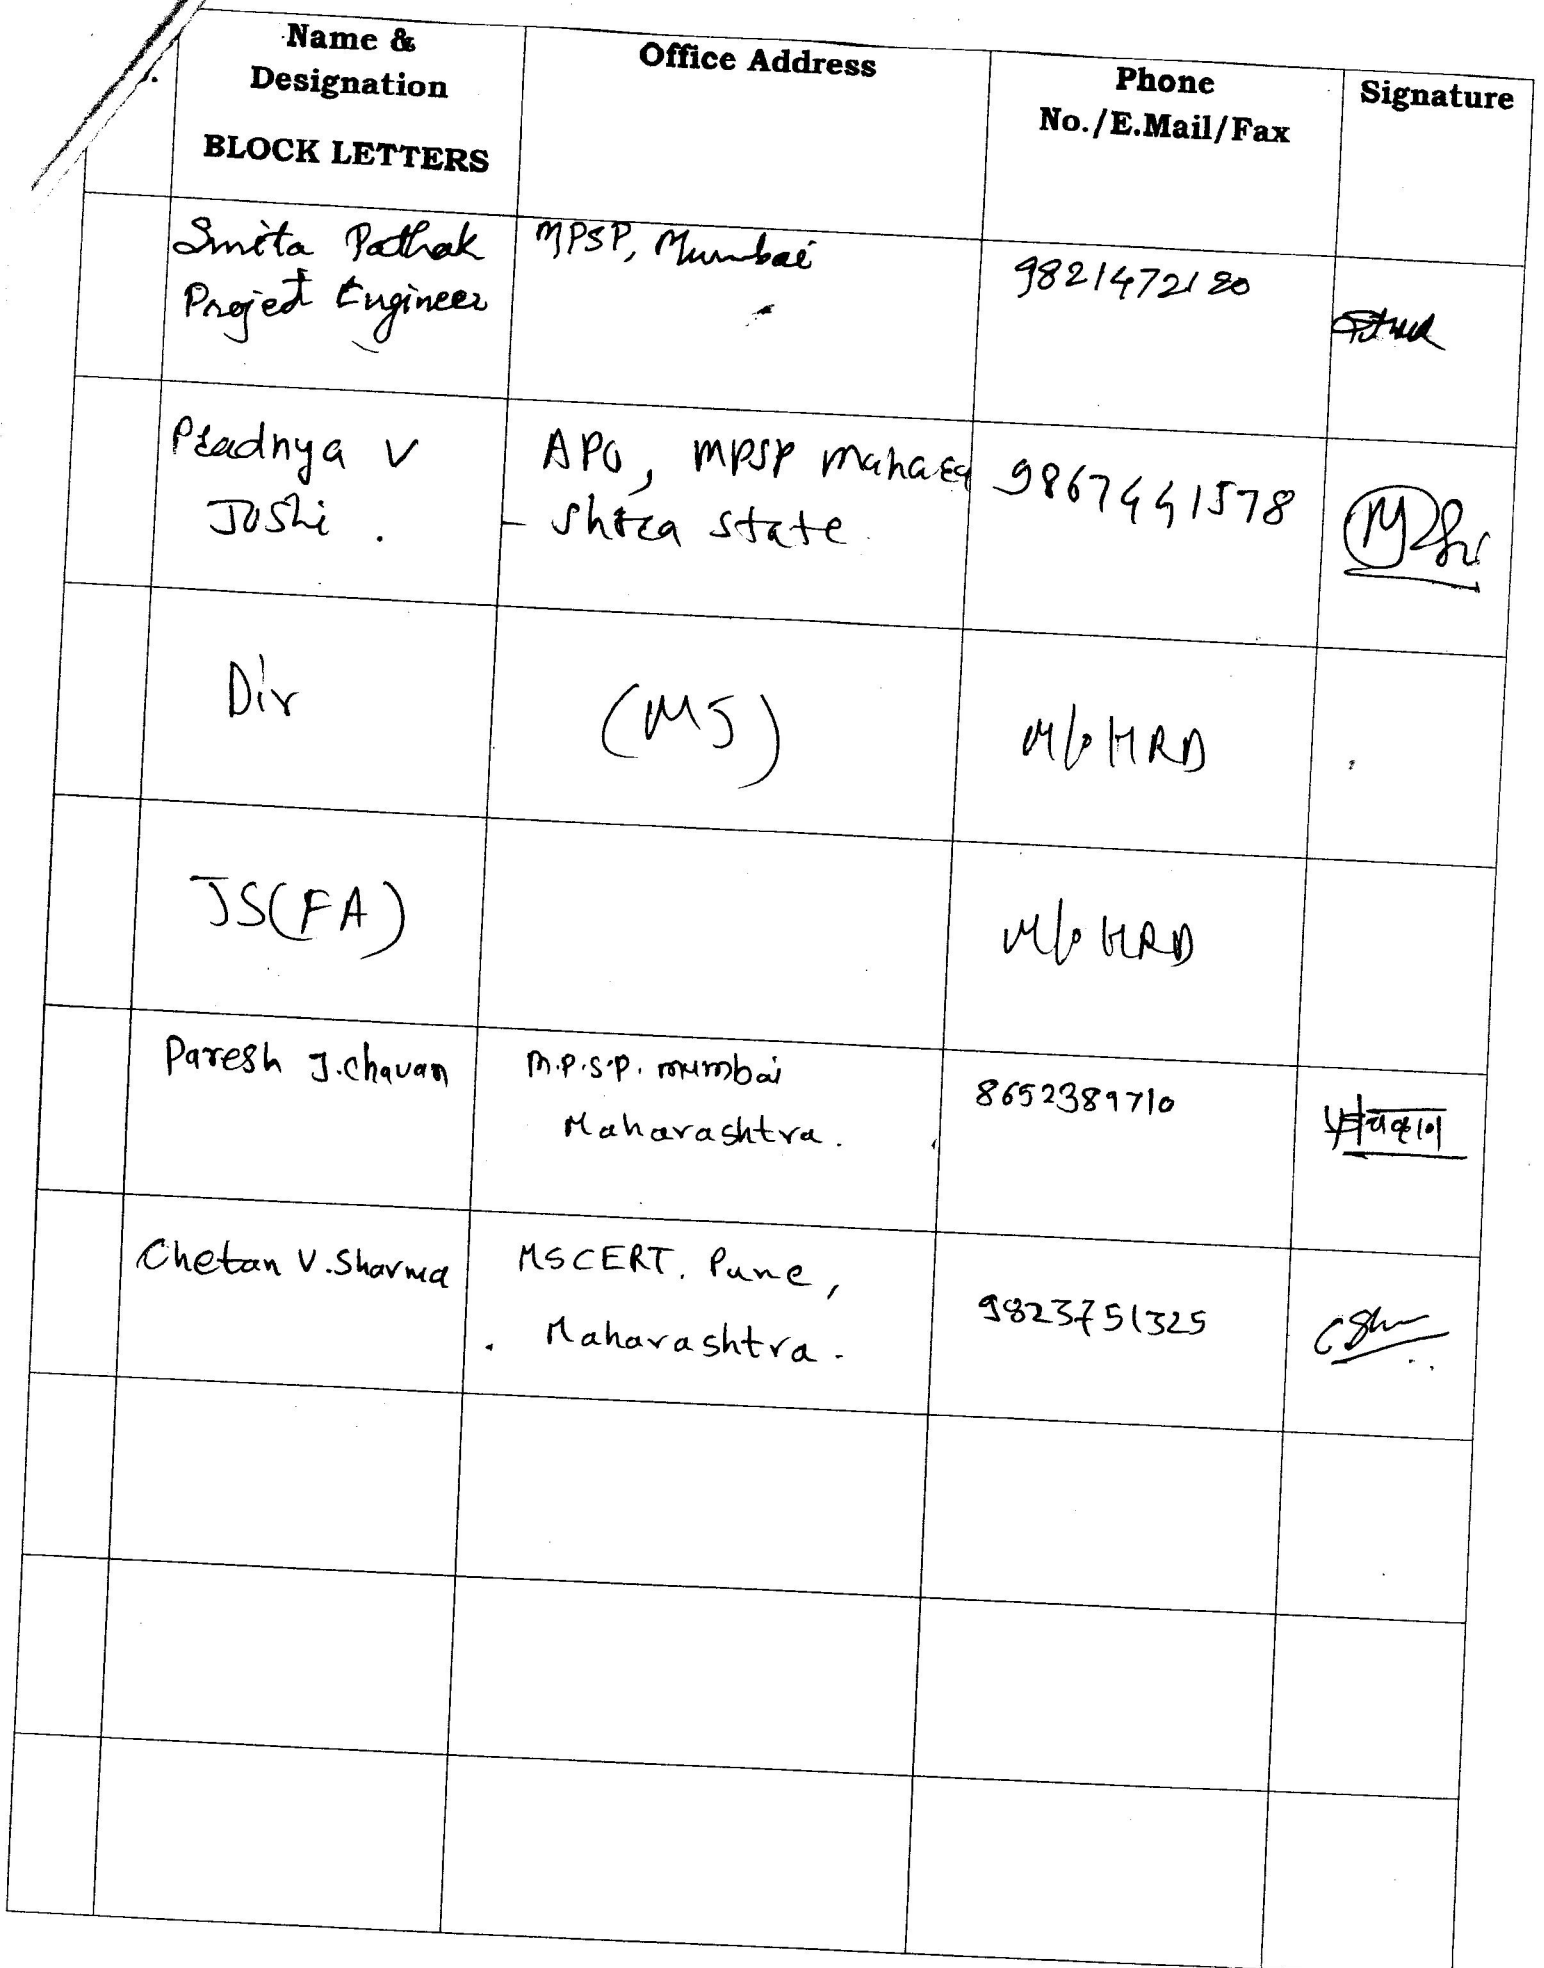 Name &
Designation
BLOCK LETTERS
Office Address
Phone
No./E.Mail/Fax
Signature
Smita Pathak
Project Engineer
MPSP, Mumbai
9821472120
Pradnya V
Joshi .
APO, MPSP Mahara
- Shtra state
9867441578
Dir
(MS)
M/o HRD
JS(FA)
M/o HRD
Paresh J.Chavan
M.P.S.P. mumbai
Maharashtra.
8652389710
Chetan V.Sharma
MSCERT. Pune,
Maharashtra.
9823751325